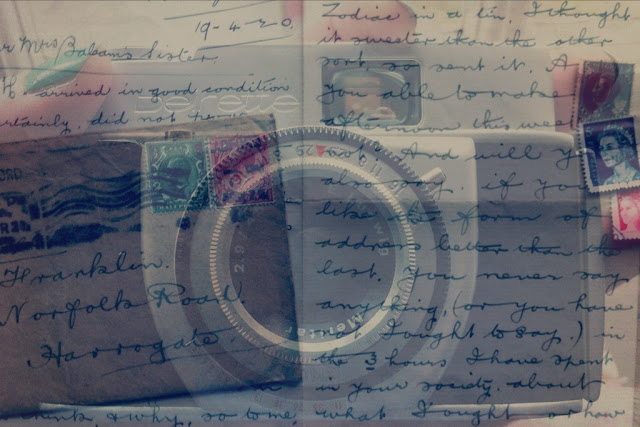 19-4-20.
Mrs Sister
arrived in good condition
did not
ORD
Franklin.
Norfolk Road.
Harrogate.
& why, so to me,
Zodiac in a tin, I thought
it sweeter than the other
sort, so sent it. A
you able to make
afternoon this
And will y
also say, if you
like form of
address better than the
last. You never say
anything, (or you have
I ought to say.) in
the 3 hours I have spent
in your society, about
what I ought or how
Mentor